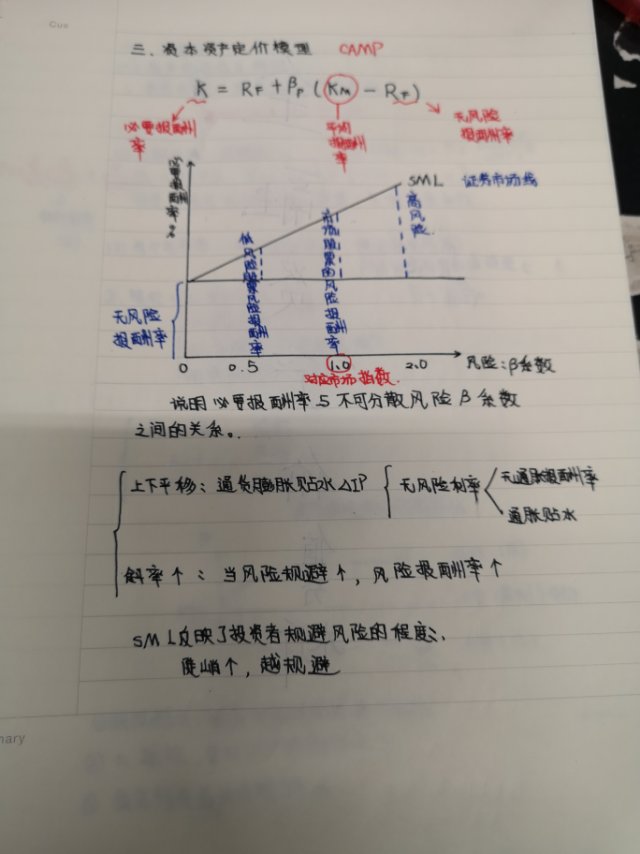 Cue
三、资本资产定价模理 CAMP
K = RF + βP (KM - RF)
必要报酬率
平均报酬率
无风险报酬率
必要报酬率%
SML 证券市场线
低风险股票风险报酬率
市场股票的风险报酬率
高风险
无风险报酬率
0 0.5 1.0 2.0 风险:β系数
对应市场指数.
说明必要报酬率与不可分散风险β系数
之间的关系。
上下平移:通货膨胀贴水ΔIP 无风险利率 无通胀报酬率
通胀贴水
斜率↑:当风险规避↑,风险报酬率↑
SML反映了投资者规避风险的程度:、
陡峭↑,越规避
mary